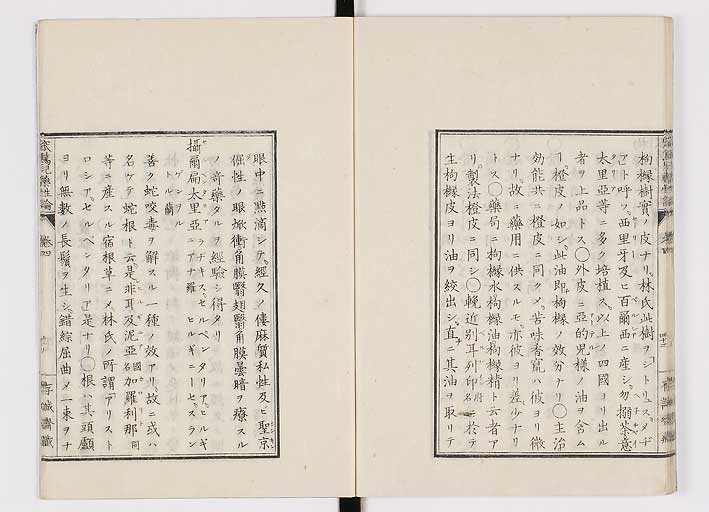 枸櫞樹實ノ皮ナリ、林氏此樹ヲ「シトリュス、メヂ
カ」ト呼ブ、西里牙及ヒ百爾西ニ産シ、勿搦茶意
太里亞等ニ多ク培植ス、以上ノ四國ヨリ出ル
者ヲ上品トス〇外皮ニ亞的兒樣ノ油ヲ含ム
ヿ橙皮ノ如シ、此油即枸櫞ノ效分ナリ〇主治
效能共ニ橙皮ニ同クメ、苦味香竄ハ彼ヨリ微
ナリ、故ニ藥用ニ供スルモ、亦彼ヨリ差少ナリ
トス〇藥局ニ枸櫞水枸櫞油枸櫞精ト云者ア
リ、製法橙皮ニ同シ〇輓近別耳列印 名府 ニ於テ
生枸櫞皮ヨリ油ヲ絞出シ、直チニ其油ヲ取リテ
眼中ニ點滴シテ、經久ノ僂麻質私性及ヒ聖京
倔性ノ眼焮衝、角膜翳、翅翳、角膜曇暗ヲ療スル
ノ奇藥タルヲ經驗シ得タリ
攝爾扁太里亞 アラヂキス、セルペンタリア、ヒルギ
ニアナ羅 ヒルギニーセ、スラン
ゲンヲルトル蘭
善ク蛇咬毒ヲ解スル一種ノ效アリ、故ニ或ハ
名ケテ蛇根ト云、是非耳及泥亞 國名 加羅利那 同
等ニ産スル宿根草ニメ、林氏ノ所謂「アリスト
ロシア、セルペンタリア」是ナリ〇根ハ其頭顱
ヨリ無數ノ長鬚ヲ生シ、錯綜屈曲メ一束ヲナ
卷四